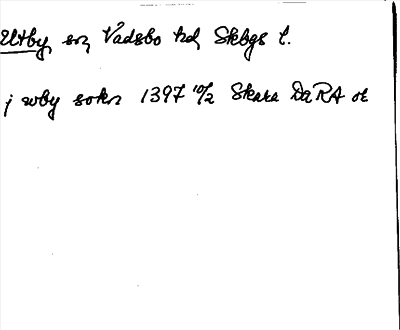 Utby sn, Vadsbo hd, Skbgs l.
j wby sokn 1397 10/2 Skara DaRA or